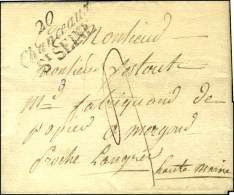 20
Chanceaux
ST SEINE
Monsieur
Monsieur Lestout
Md fabriquand de
papier a morgond
proche Langres
haute marne